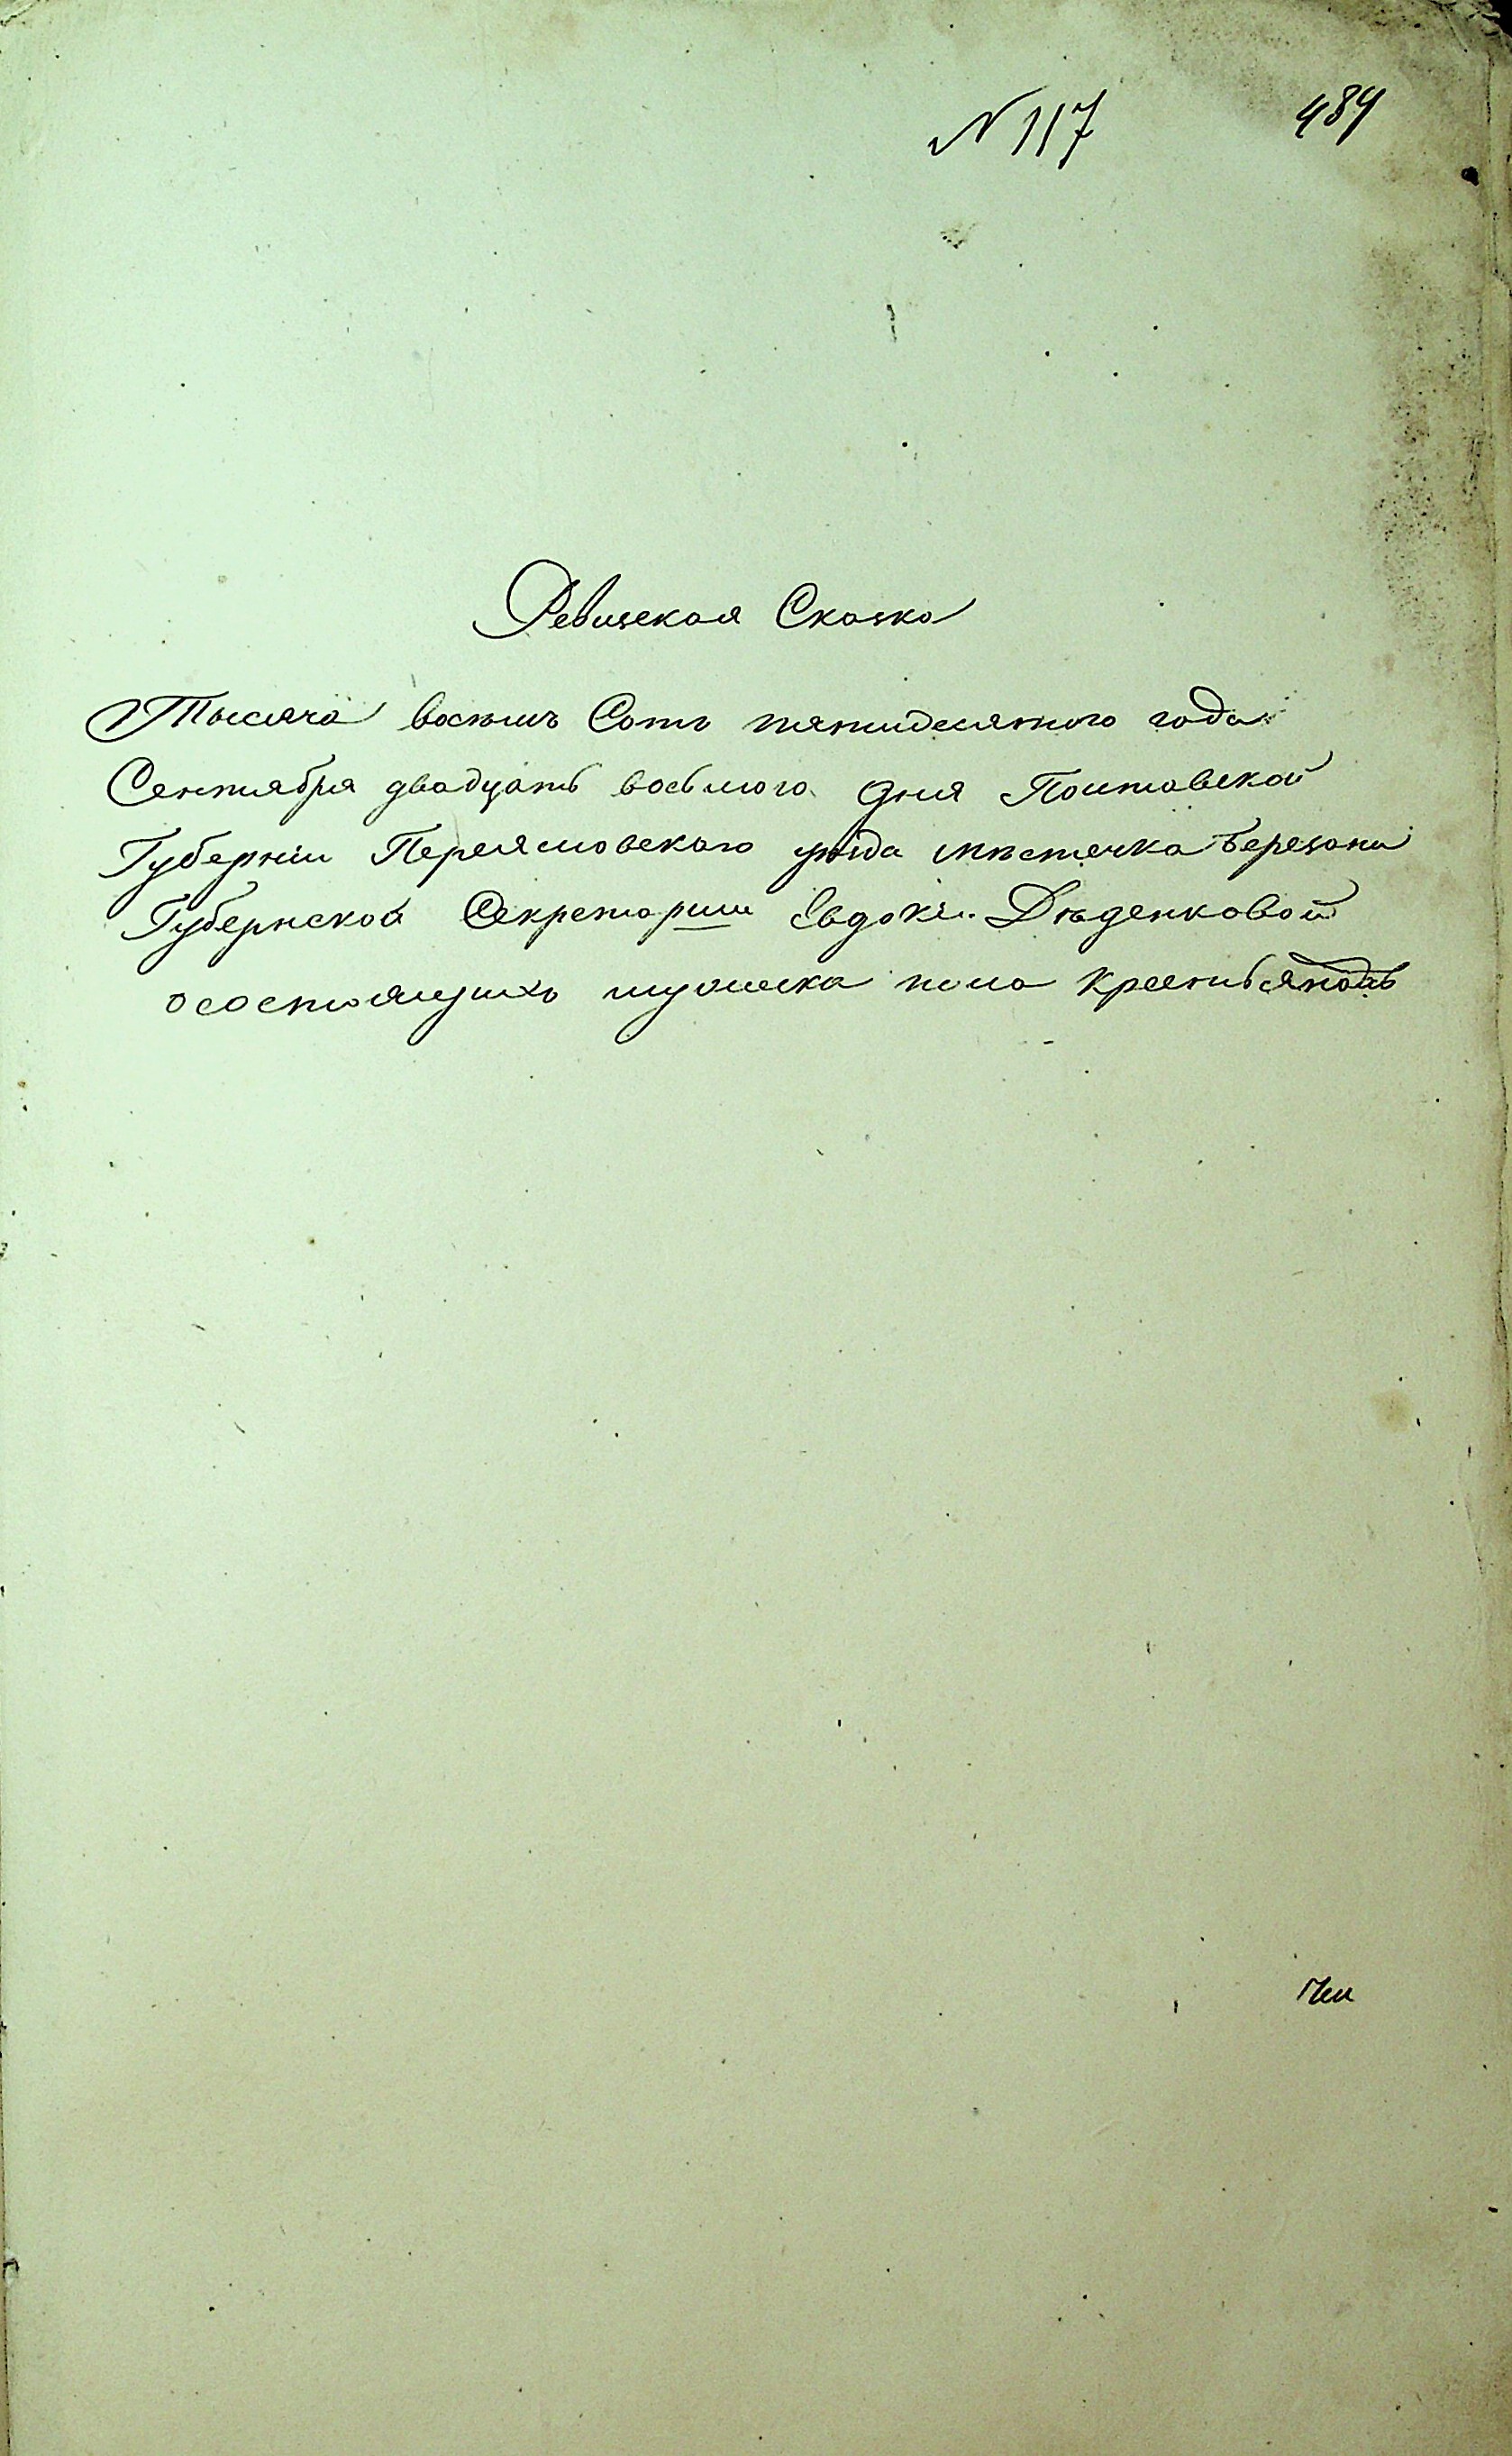 N 117 484
Ревизская Сказка
Тысяча восемъ Сотъ пятидесятого года
Сентября двадцать восьмого дня Полтавской
Губерніи Переясловского уѣзда мѣстечка Березани
Губернской Секретарши Евдокіи Дѣденковой
осостоящихъ мужеска пола крестьянахъ